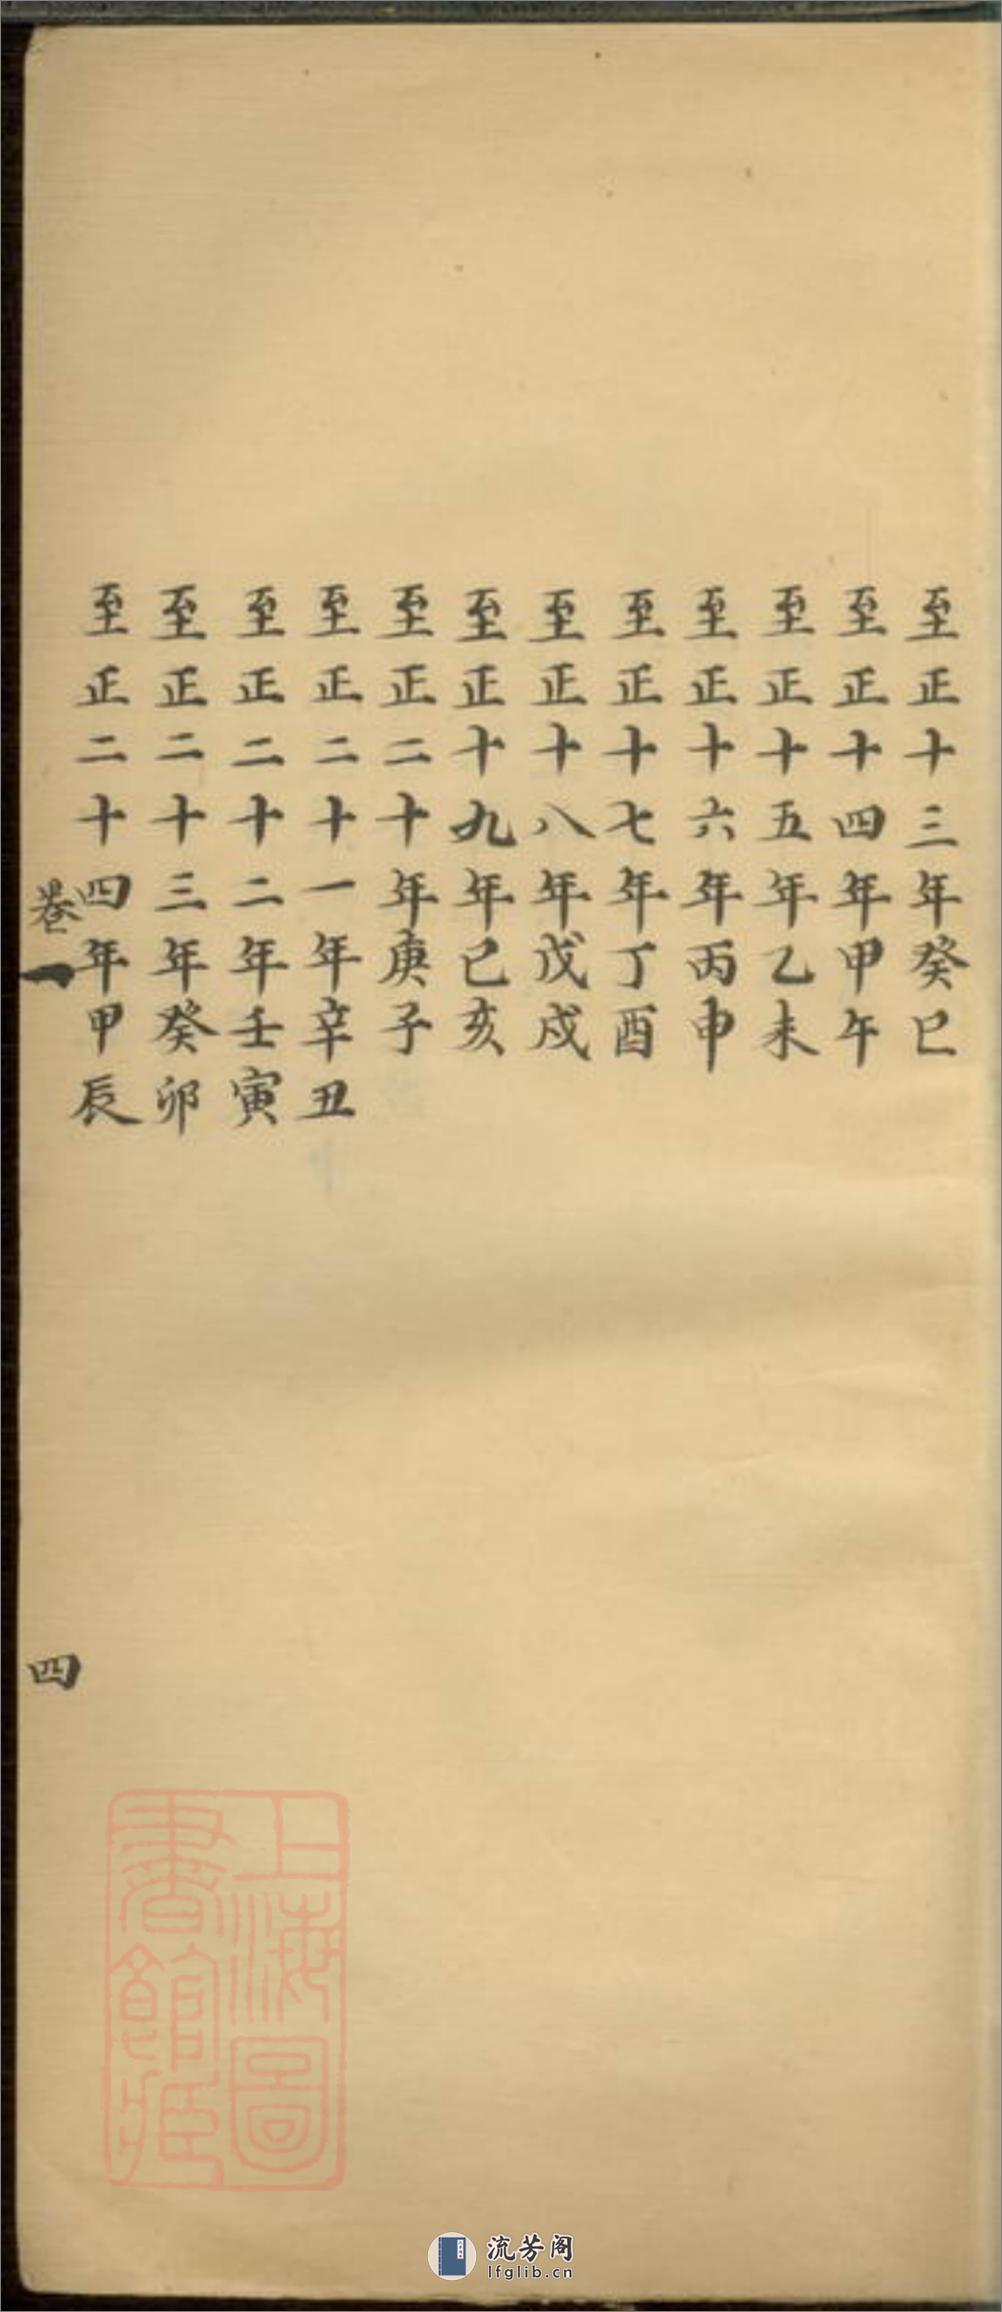 至正十三年癸巳
至正十四年甲午
至正十五年乙未
至正十六年丙申
至正十七年丁酉
至正十八年戊戌
至正十九年己亥
至正二十年庚子
至正二十一年辛丑
至正二十二年壬寅
至正二十三年癸卯
至正二十四年甲辰
卷一
四
上海圖
書館藏
流芳阁
lfglib.cn